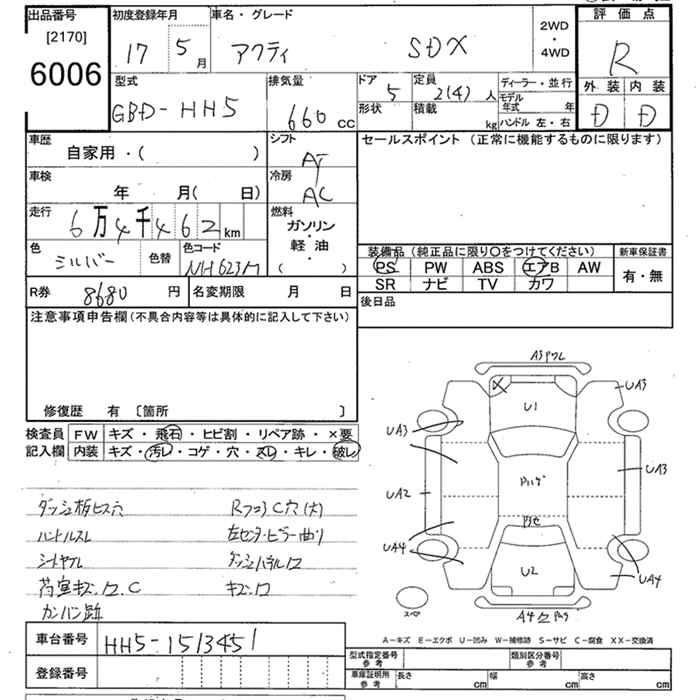 出品番号
[2170]
6006
初度登録年月
17 5月
車名・グレード
アクティ SDX
2WD
・
4WD
評価点
R
外装 内装
D D
型式
GBD-HH5
排気量
660cc
ドア 5
定員 2(4)人
形状
積載 kg
ディーラー・並行
モデル年式 年
ハンドル 左・右
車歴
自家用・( )
シフト
AT
セールスポイント (正常に機能するものに限ります)
車検
年 月( 日)
冷房
AC
走行
6万4千462km
燃料
ガソリン
・
軽油
( )
色 シルバー
色替
色コード NH623M
装備品 (純正品に限り○をつけてください)
新車保証書
PS PW ABS エアB AW
SR ナビ TV カワ
有・無
R券 8680円
名変期限 月 日
後日品
注意事項申告欄(不具合内容等は具体的に記入して下さい)
修復歴 有 〔箇所 〕
検査員
記入欄
FW キズ・飛石・ヒビ割・リペア跡・×要
内装 キズ・汚レ・コゲ・穴・スレ・キレ・破レ
ダッシュ板ビス穴
Rフロア C穴(大)
ハンドルスレ
左センターピラー曲り
シートヤブレ
ダッシュパネルワ
荷室キズ.ワ.C
キズ.ワ
カンバン跡
A3ワレ
UA3
U1
UA3
UA3
UA2
UA4
U2
UA4
スペア
A-キズ E-エクボ U-凹み W-補修跡 S-サビ C-腐食 XX-交換済
車台番号 HH5-1513451
登録番号
型式指定番号
参考
類別区分番号
参考
車庫証明用
参考
長さ cm
幅 cm
高さ cm